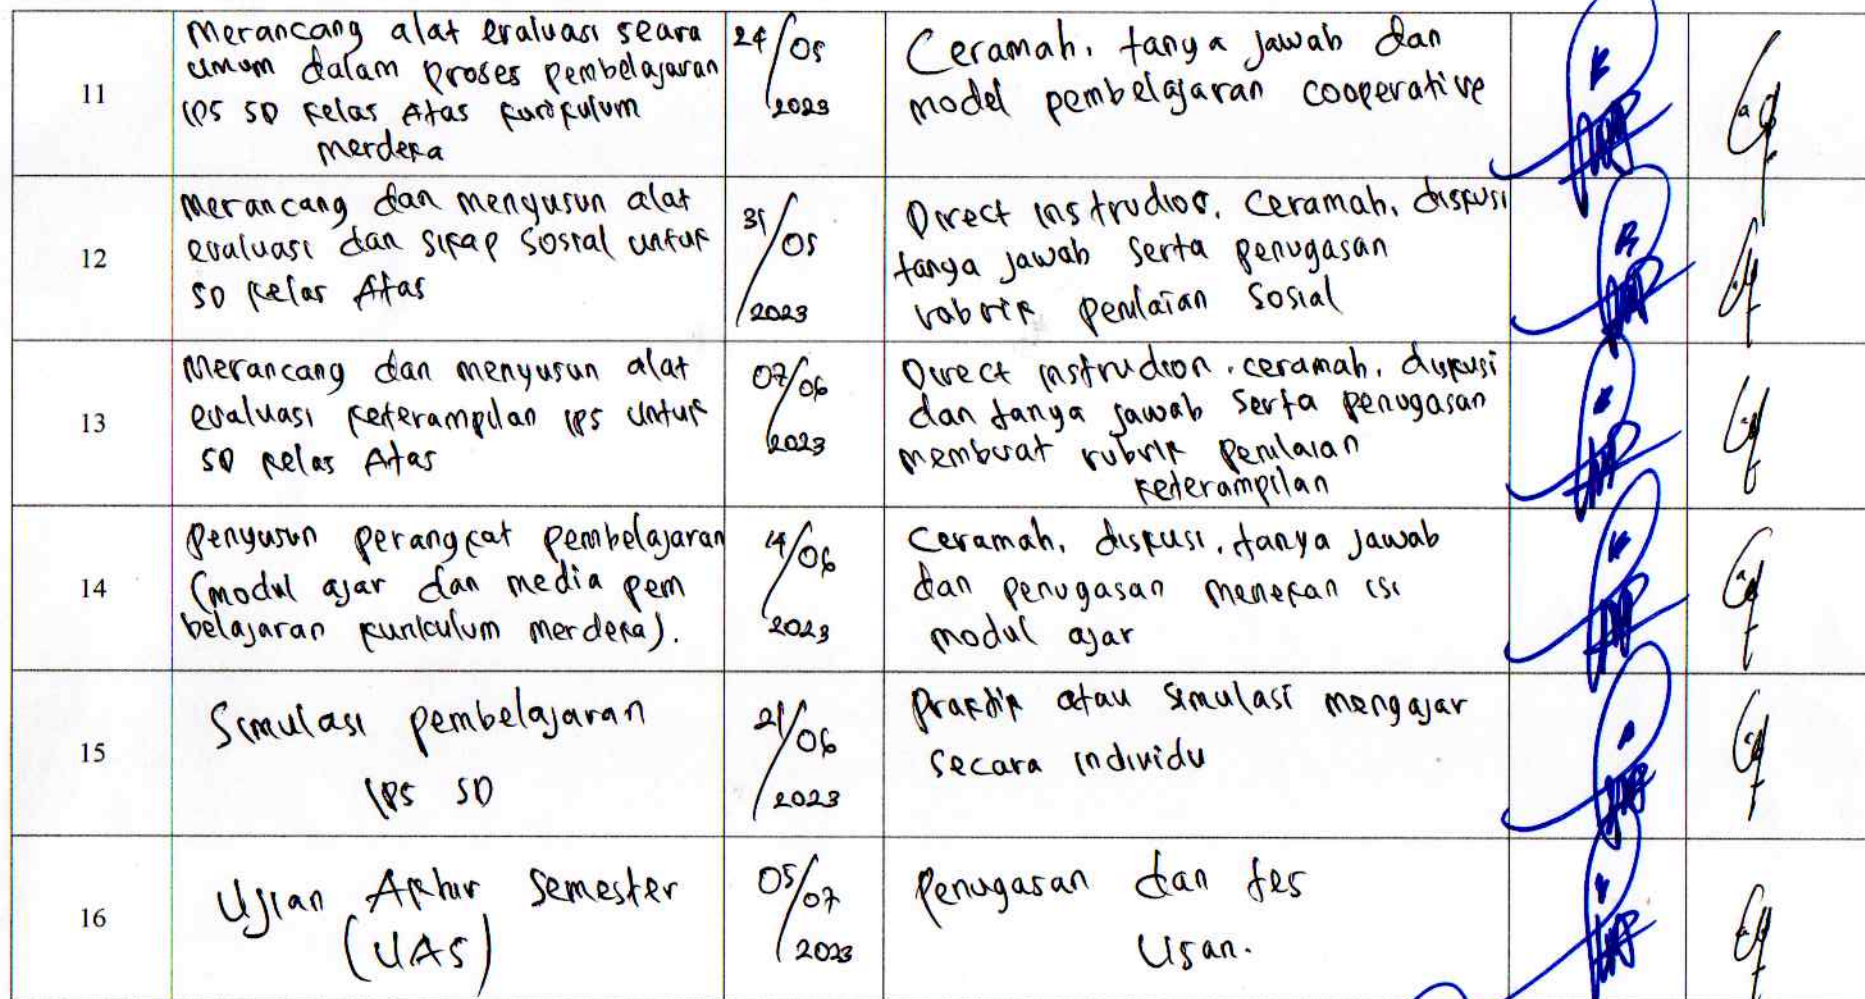 11
Merancang alat evaluasi seara
umum dalam proses pembelajaran
IPS SD kelas Atas kurikulum
merdeka
24/05
2023
Ceramah, tanya jawab dan
model pembelajaran cooperative
12
Merancang dan menyusun alat
evaluasi dan sikap sosial untuk
SD kelas Atas
31/05
2023
Direct instrudios, ceramah, diskusi
tanya jawab serta penugasan
rabrik penilaian sosial
13
Merancang dan menyusun alat
evaluasi keterampilan IPS untuk
SD kelas Atas
07/06
2023
Direct instrudion, ceramah, diskusi
dan tanya jawab serta penugasan
membuat rubrik penilaian
keterampilan
14
Penyusun perangkat pembelajaran
(modul ajar dan media pem
belajaran kurikulum merdeka).
14/06
2023
Ceramah, diskusi, tanya jawab
dan penugasan menekan isi
modul ajar
15
Simulasi pembelajaran
IPS SD
21/06
2023
Praktik atau simulasi mengajar
secara individu
16
Ujian Akhir Semester
(UAS)
05/07
2023
Penugasan dan tes
Usan.